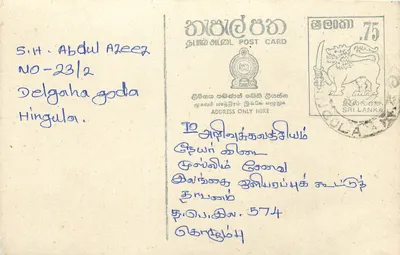 S.H. Abdul Azeez
NO-23/2
Delgaha goda
Hingula.
තැපැල් පත
தபால் அட்டை POST CARD
ලිපිනය පමණක් මෙහි ලියන්න
ADDRESS ONLY HERE
ශ්‍රී ලංකා .75
இலங்கை
SRI LANKA
To அறிவுக்களஞ்சியம்
நேயர் விடை
முஸ்லிம் சேவை
இலங்கை ஒலிபரப்புக் கூட்டுத்
தாபனம்
த.பெ.இல. 574
கொழும்பு